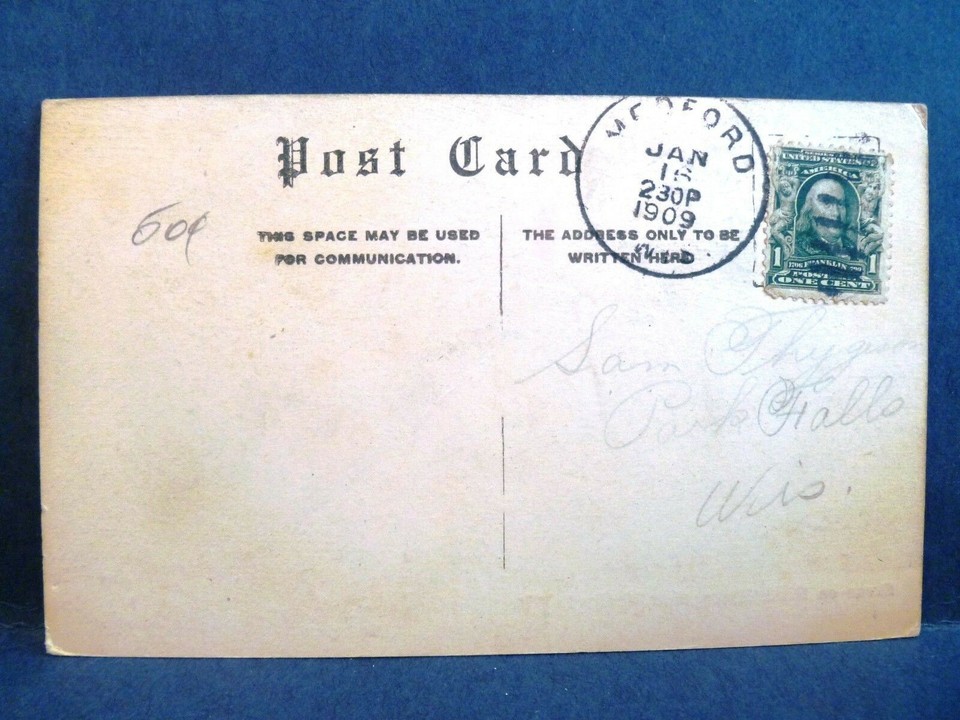 Post Card
60¢
THIS SPACE MAY BE USED
FOR COMMUNICATION.
THE ADDRESS ONLY TO BE
WRITTEN HERE
MEDFORD
JAN
230P
1909
WIS.
SERIES 1902
UNITED STATES OF
AMERICA
1 1
FRANKLIN
POSTAGE
ONE CENT
Sam
Park Falls
Wis.